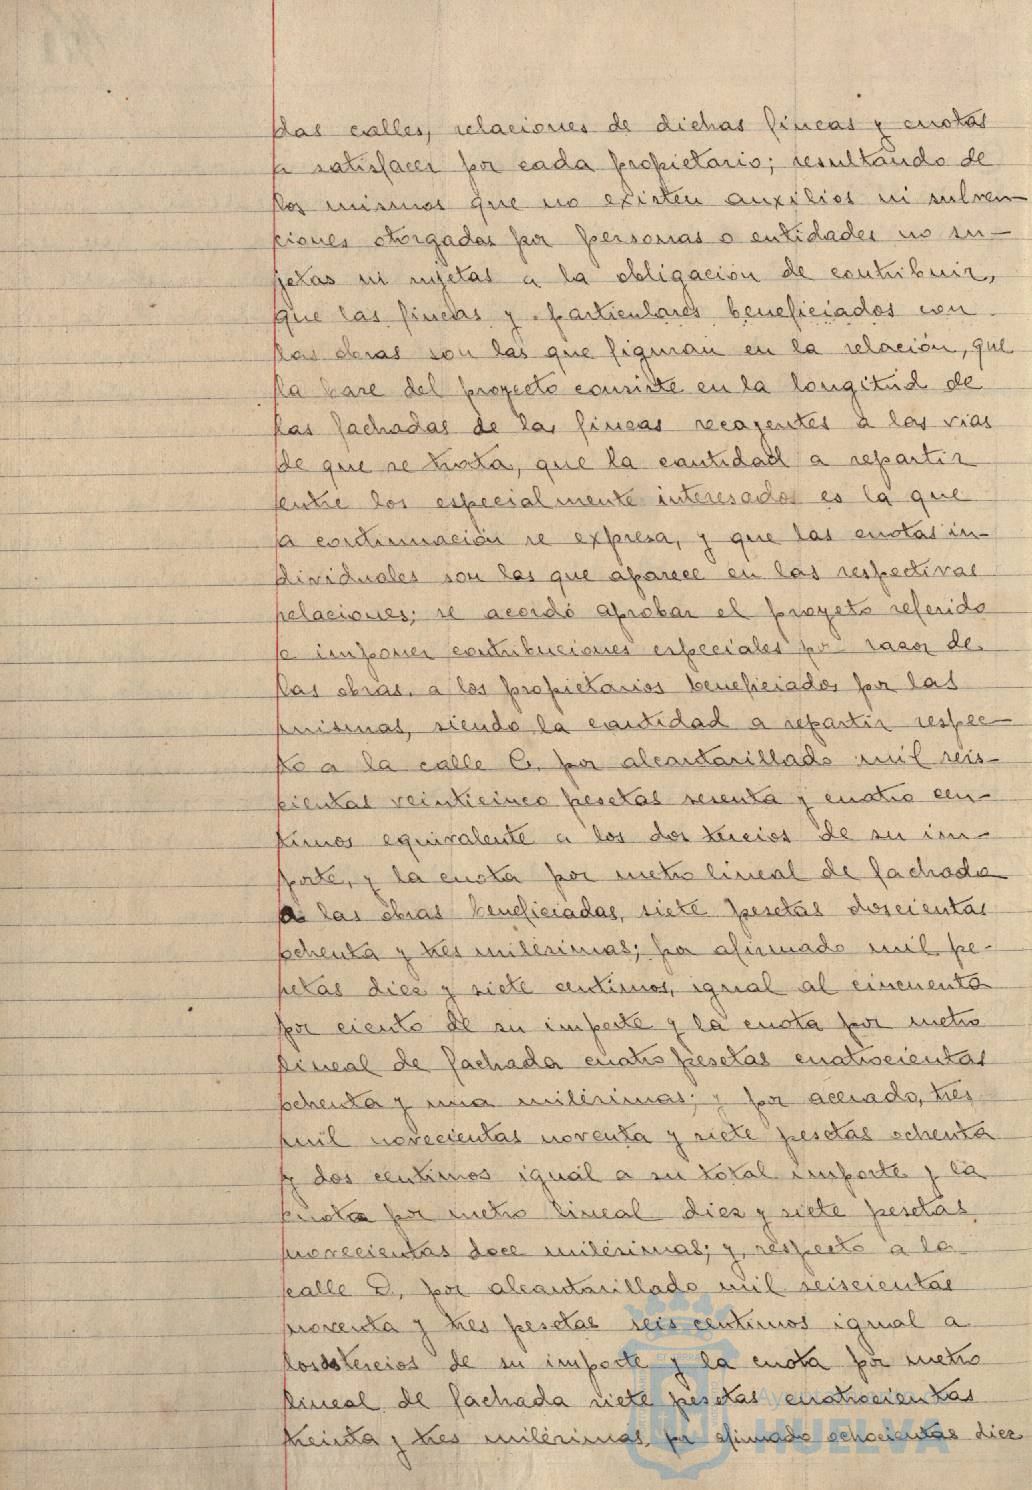 das calles, relaciones de dichas fincas y cuotas
a satisfacer por cada propietario; resultando de
los mismos que no existen auxilios ni subven-
ciones otorgadas por personas o entidades no su-
jetas ni sujetas a la obligación de contribuir,
que las fincas y particulares beneficiados con
las obras son las que figuran en la relación, que
la base del proyecto consiste en la longitud de
las fachadas de las fincas recayentes a las vias
de que se trata, que la cantidad a repartir
entre los especialmente interesados es la que
a continuación se expresa, y que las cuotas in-
dividuales son las que aparece en las respectivas
relaciones; se acordó aprobar el proyeto referido
e imponer contribuciones especiales por razon de
las obras a los propietarios beneficiados por las
mismas, siendo la cantidad a repartir respec-
to a la calle C. por alcantarillado mil seis-
cientas veinticinco pesetas sesenta y cuatro cen-
timos equivalente a los dos tercios de su im-
porte, y la cuota por metro lineal de fachada
a las obras beneficiadas, siete pesetas doscientas
ochenta y tres milésimas; por afirmado mil pe-
setas diez y siete centimos, igual al cincuenta
por ciento de su importe y la cuota por metro
lineal de fachada cuatro pesetas cuatrocientas
ochenta y una milésimas; y por acerado, tres
mil novecientas noventa y siete pesetas ochenta
y dos centimos igual a su total importe y la
cuota por metro lineal diez y siete pesetas
novecientas doce milésimas; y, respecto a la
calle D, por alcantarillado mil seiscientas
noventa y tres pesetas seis centimos igual a
los dos tercios de su importe y la cuota por metro
lineal de fachada siete pesetas cuatrocientas
treinta y tres milésimas, por afirmado ochocientas diez
HUELVA